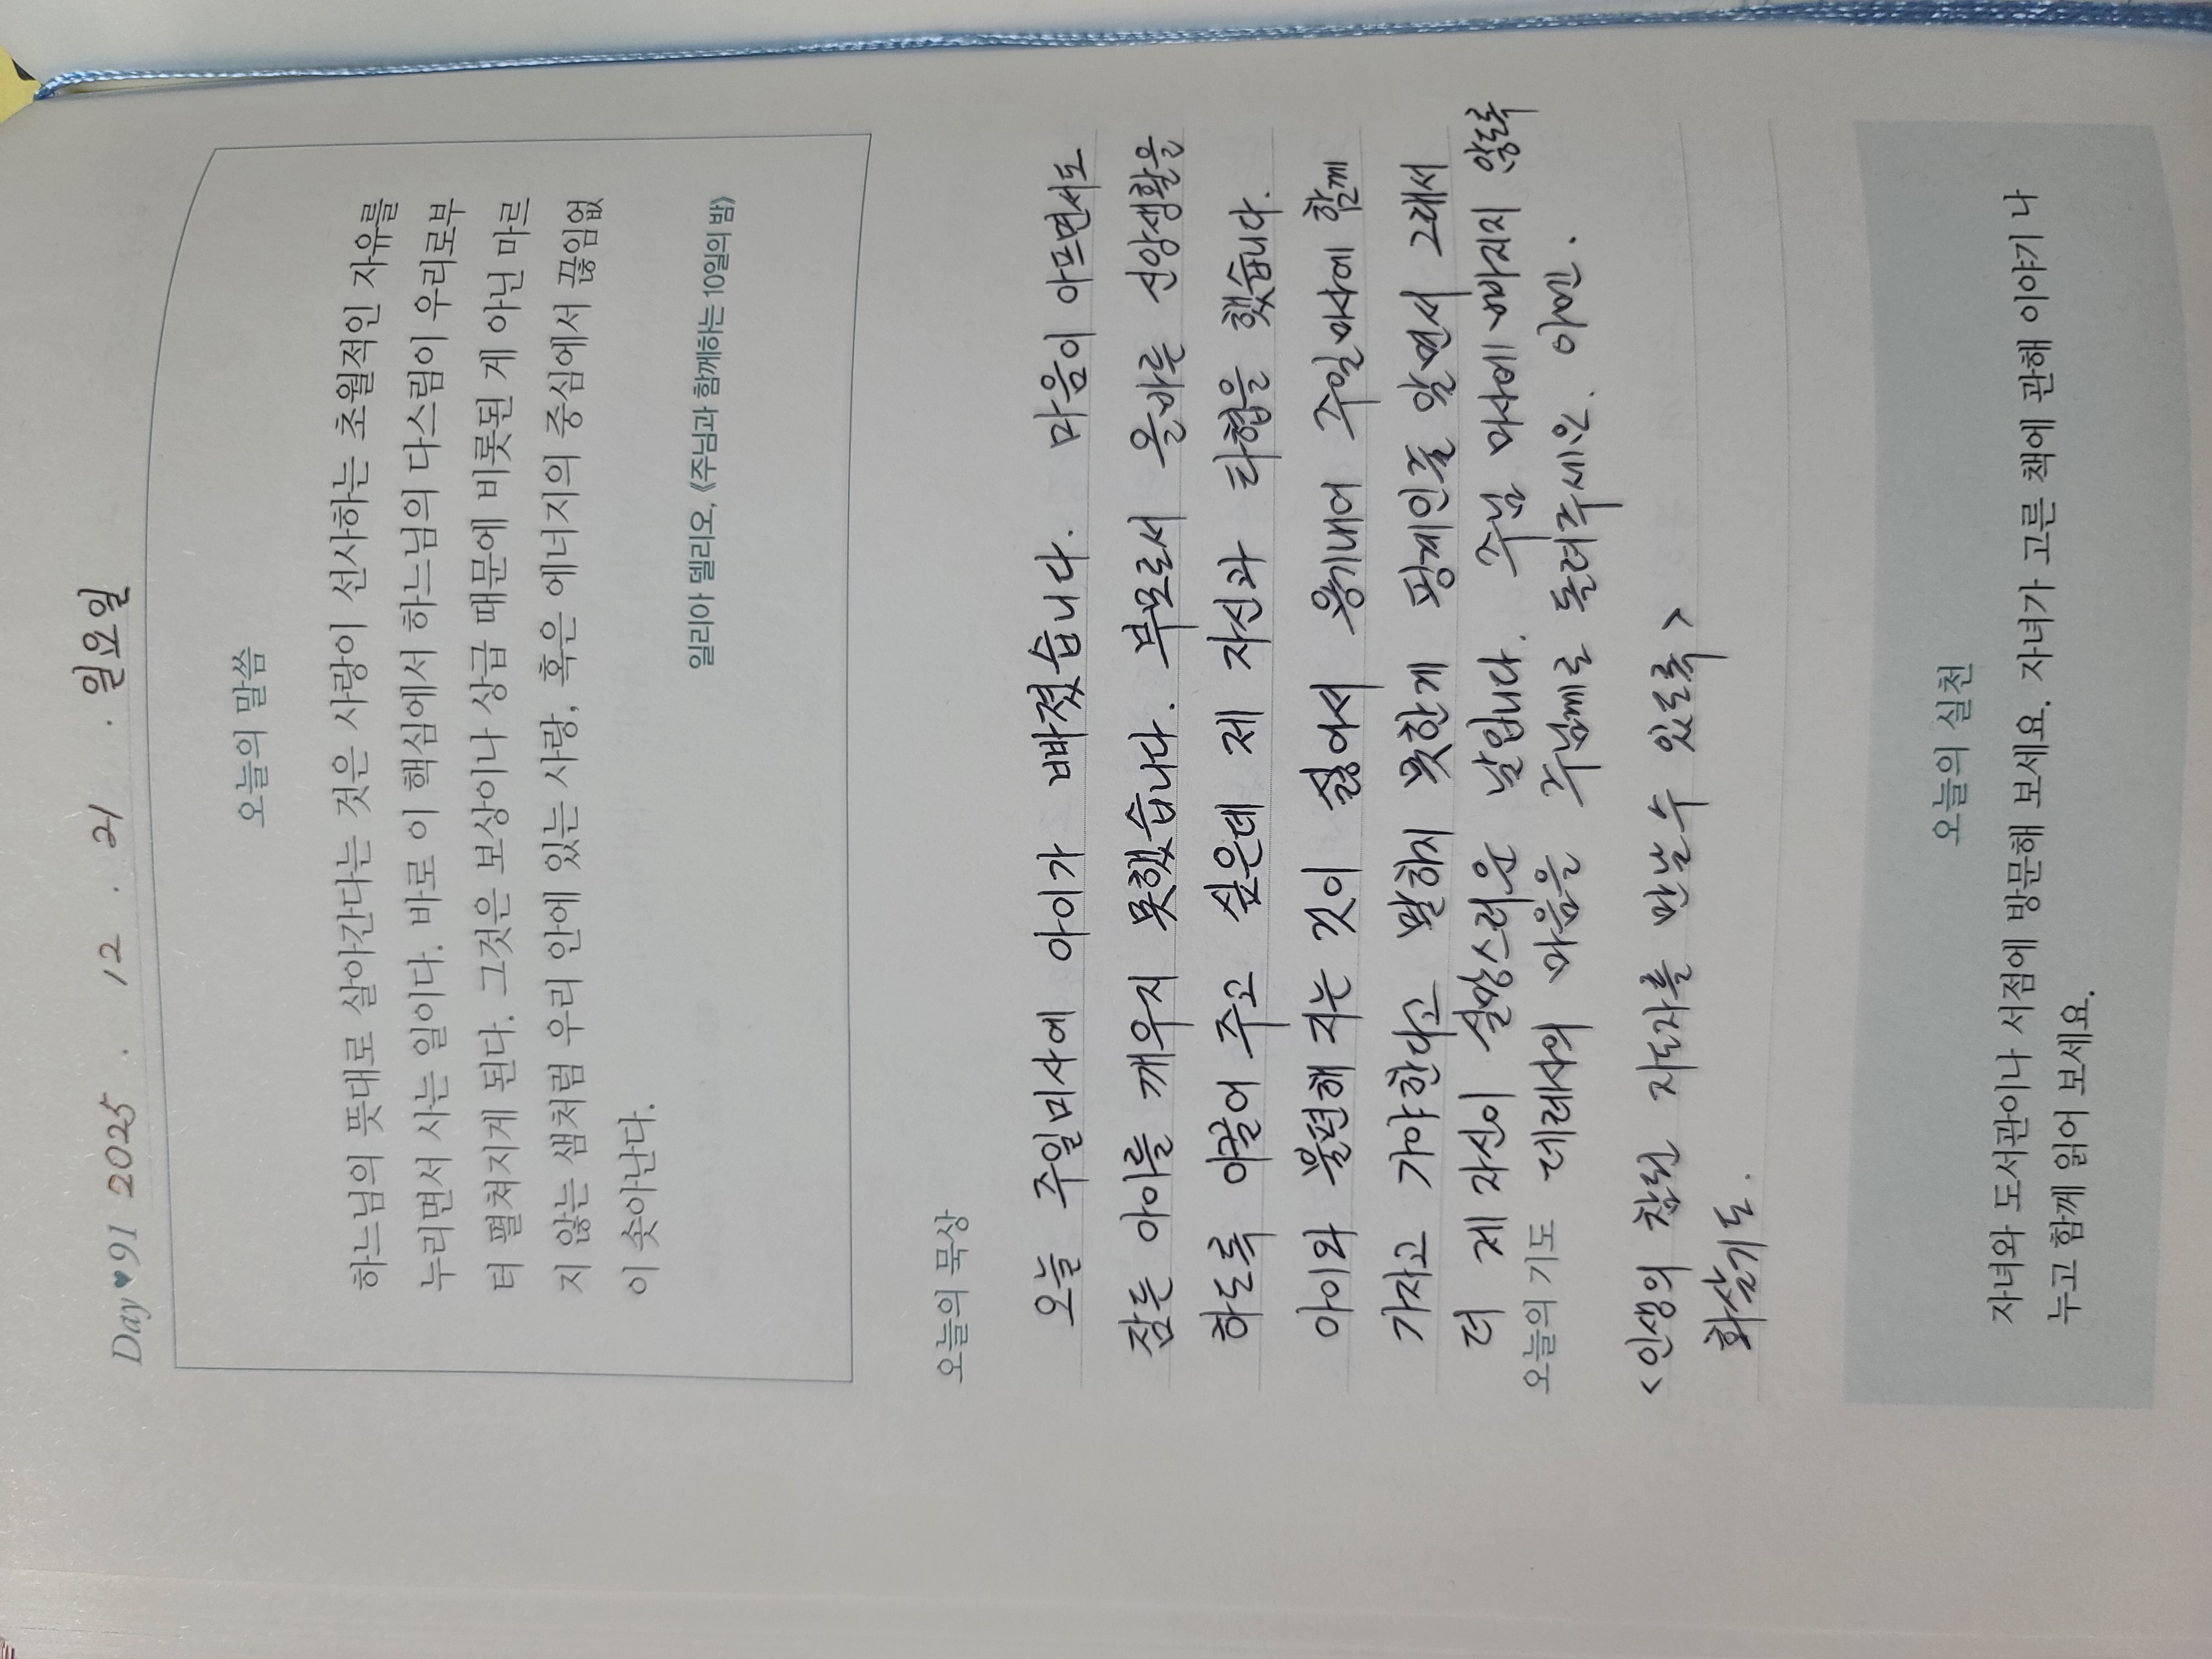 Day♥91 2025 . 12 . 21 . 일요일
오늘의 말씀
하느님의 뜻대로 살아간다는 것은 사랑이 선사하는 초월적인 자유를
누리면서 사는 일이다. 바로 이 핵심에서 하느님의 다스림이 우리로부
터 펼쳐지게 된다. 그것은 보상이나 상급 때문에 비롯된 게 아닌 마르
지 않는 샘처럼 우리 안에 있는 사랑, 혹은 에너지의 중심에서 끊임없
이 솟아난다.
일리아 델리오, 《주님과 함께하는 10일의 밤》
오늘의 묵상
오늘 주일미사에 아이가 빠졌습니다. 마음이 아프면서도
잠든 아이를 깨우지 못했습니다. 부모로서 올바른 신앙생활을
하도록 이끌어 주고 싶은데 제 자신과 타협을 했습니다.
아이와 불편해 지는 것이 싫어서 용기내어 주일미사에 함께
가자고 가야한다고 말하지 못한게 핑계인줄 알면서 그래서
더 제 자신이 실망스러운 날입니다. 주님 미사에 빠지지 않도록
오늘의 기도 데레사의 마음을 주님께로 돌려주세요. 아멘.
<인생의 참된 지도자를 만날수 있도록>
화살기도.
오늘의 실천
자녀와 도서관이나 서점에 방문해 보세요. 자녀가 고른 책에 관해 이야기 나
누고 함께 읽어 보세요.